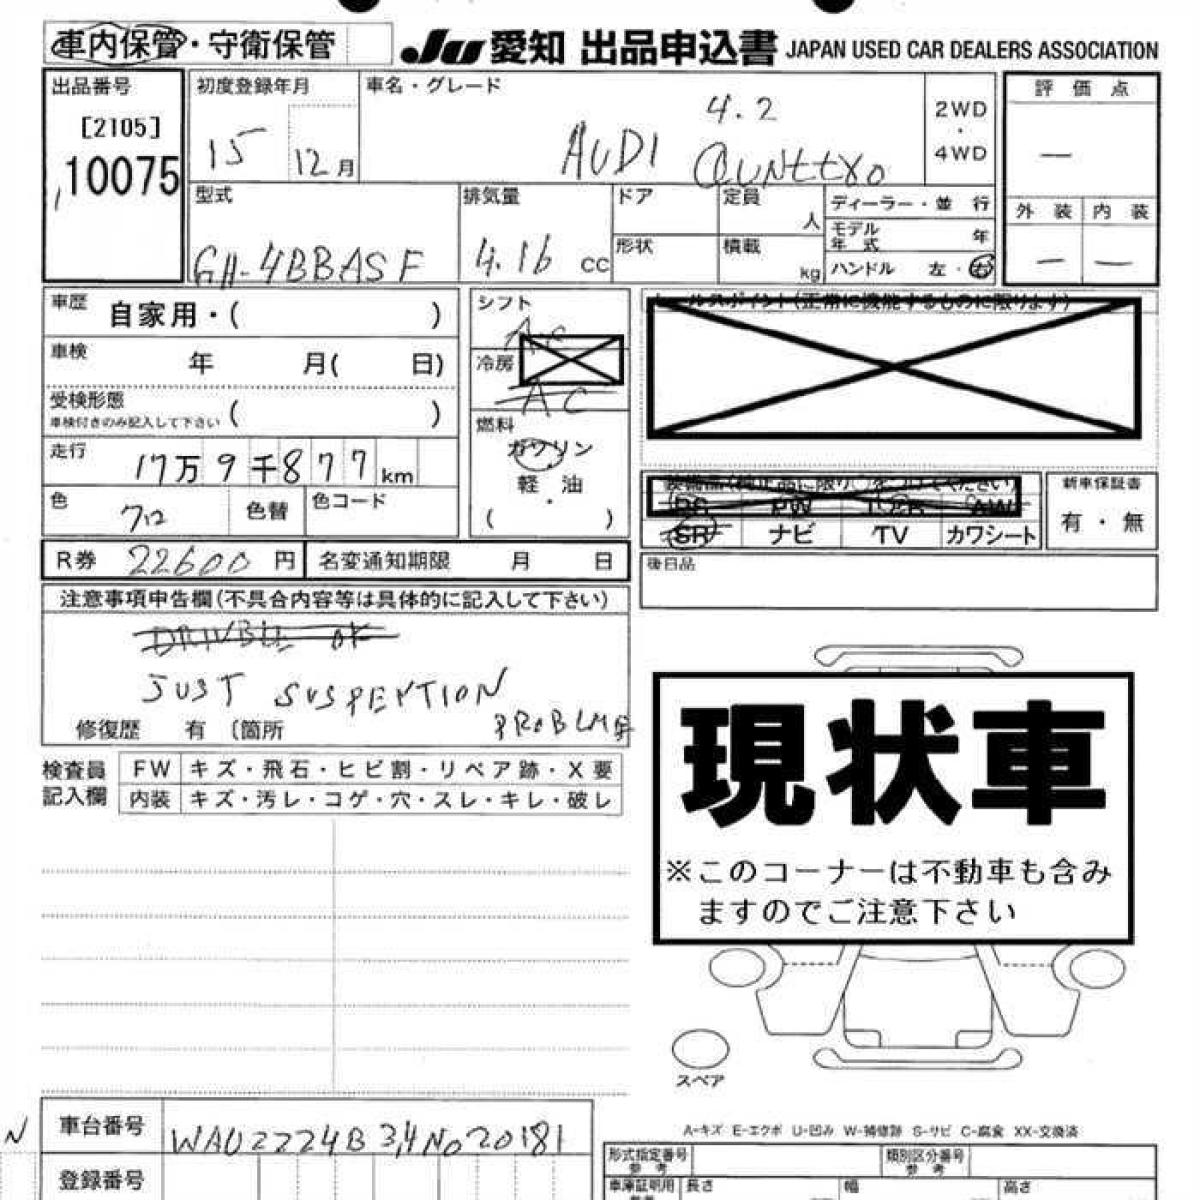 車内保管・守衛保管
JU 愛知 出品申込書 JAPAN USED CAR DEALERS ASSOCIATION
出品番号
[2105]
10075
初度登録年月
15 12月
車名・グレード
AUDI 4.2
QUNttYo
2WD
・
4WD
評価点
—
外装 内装
— —
型式
GH-4BBASF
排気量
4.16 cc
ドア
定員
人
形状
積載
kg
ディーラー・並行
モデル年式 年
ハンドル 左・右
車歴 自家用・( )
車検 年 月( 日)
受検形態
車検付きのみ記入して下さい ( )
走行 17万9千877km
色
色替
色コード
シフト
冷房
AC
燃料
ガソリン
・
軽油
( )
セールスポイント(正常に機能するものに限ります)
PS PW AW
SR ナビ TV カワシート
新車保証書
有・無
R券 22600円
名変通知期限 月 日
後日品
注意事項申告欄(不具合内容等は具体的に記入して下さい)
DRIVBLE OK
JUST SUSPENTION
PROBLME
修復歴 有 (箇所
現状車
※このコーナーは不動車も含み
ますのでご注意下さい
検査員
記入欄
FW キズ・飛石・ヒビ割・リペア跡・X要
内装 キズ・汚レ・コゲ・穴・スレ・キレ・破レ
スペア
A-キズ E-エクボ U-凹み W-補修跡 S-サビ C-腐食 XX-交換済
N
車台番号
登録番号
形式指定番号
参考
類別区分番号
参考
車庫証明用
参考
長さ
幅
高さ